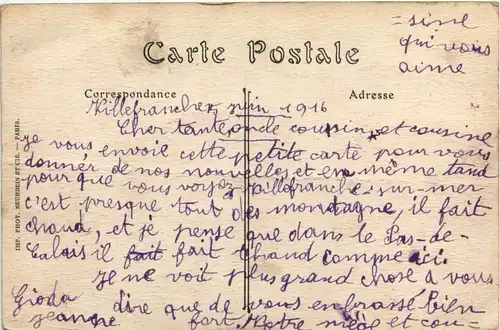 =sine
qui vous
aime
Carte Postale
Correspondance
Adresse
Villefranche juin 1916
Cher tante, oncle coussin, et cousine
je vous envoie cette petite carte pour vous
donner de nos nouvelles et en même tand
pour que vous voyez Villefranche-sur-mer
c'est presque tout des montagne, il fait
chaud, et je pense que dans le Pas-de-
Calais il fait fait chaud comme ici.
Je ne voit plus grand chose à vous
dire que de vous en brassé bien
fort, Votre nièce et cou-
Gioda
jeanne
IMP. PHOT. NEURDEIN ET CIE. — PARIS.